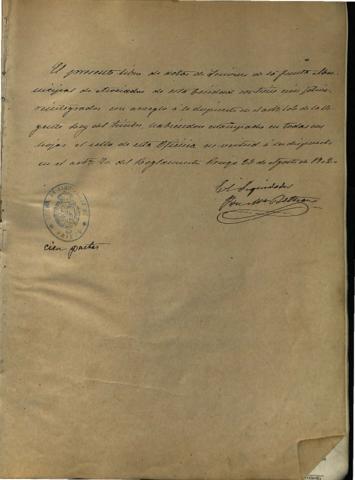 El presente libro de actas de Sesiones de la Junta Mu-
nicipal de Asociados de esta Ciudad contiene cien folios
reintegrados con arreglo á lo dispuesto en el artº de la vi-
gente Ley del Timbre, habiéndose estampado en todas sus
hojas el sello de esta Oficina en virtud á lo dispuesto
en el artº del Reglamento. Agosto de 1902.
El Liquidador
cien pesetas